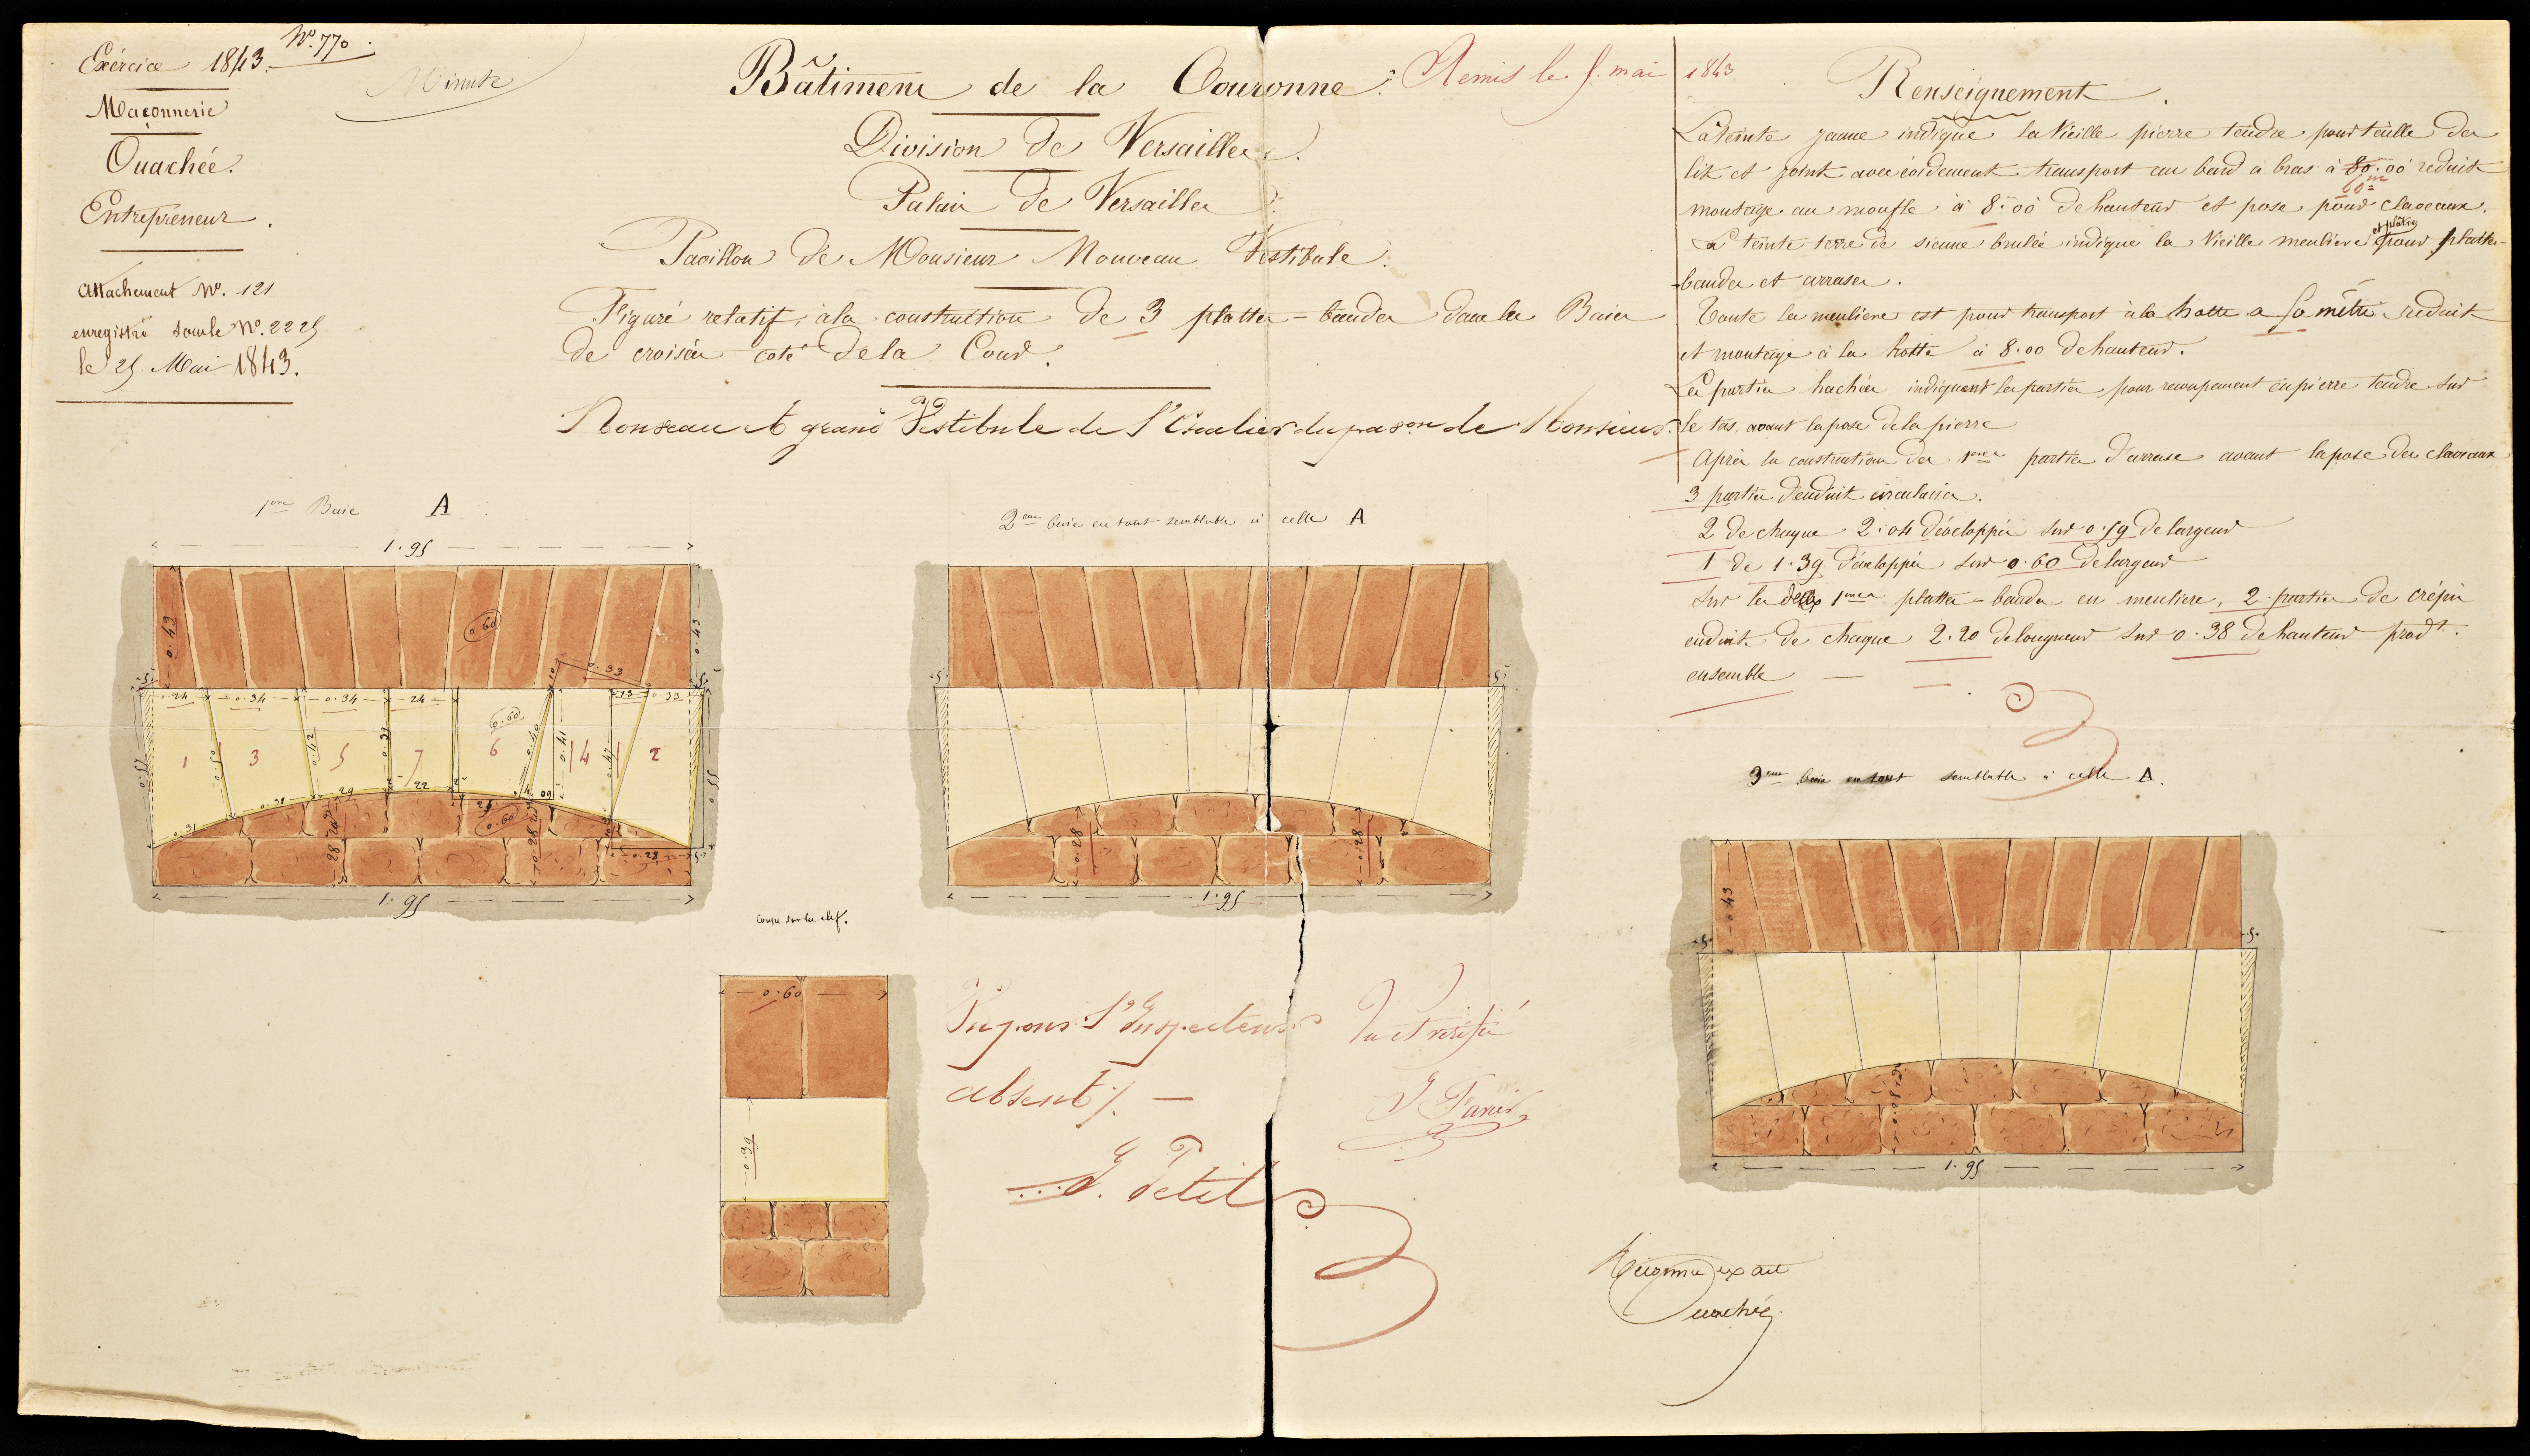 Exércice 1843. Nº. 770
Minute
Maçonnerie
Ouachée.
Entrepreneur.
Attachement Nº. 121
enregistré sous le Nº. 2225
le 25 Mai 1843.
Bâtiment de la Couronne.
Remis le 5. mai 1843
Division de Versailles.
Palais de Versailles
Pavillon de Monsieur Nouveau Vestibule.
Figuré relatif à la construction de 3 plattes-bandes dans les Baies
de croisées coté de la Cour.
Nouveau et grand Vestibule de l'Escalier du pavon de Monsieur.
Renseignement.
La teinte jaune indique la Vieille pierre tendre pour taille des
lit et joint avec évidement transport au bard à bras à 80.00 reduit
60m
montage au moufle à 8.00 de hauteur et pose pour claveaux.
La teinte terre de sienne brulée indique la Vieille meuliere et plâtre pour plattes-
bandes et arrases.
Toute la meuliere est pour transport à la hotte a 60 mètres reduit
et montage à la hotte à 8.00 de hauteur.
Les parties hachées indiquent les parties pour recoupement en pierre tendre sur
le tas, avant la pose de la pierre
Après la construction des 1eres parties d'arrase avant la pose des claveaux
3 parties d'enduit circulaires.
2 de chaque 2.04 développé sur 0.59 de largeur
1 de 1.39 développé sur 0.60 de largeur
Sur les deux 1eres plattes-bandes en meuliere, 2 parties de crépis
enduit de chaque 2.20 de longueur sur 0.38 de hauteur prodt.
ensemble
1ere Baie A
1.95
0.43
0.60
0.43
0.33
5
0.24 0.34 0.34 24 13 0.33
5
0.57
1 3 5 7 6 4 2
0.50 0.42 0.40 0.41 0.47 0.55
0.60
0.31 0.31 29 22 29 09
0.60
28 0.28 0.28
1.95
2eme baie en tout semblable à celle A
5 5
0.28 0.28
1.95
3eme baie en tout semblable à celle A.
0.43
5 5
1.95
Coupe sur la clef.
0.60
0.39
l'Inspecteur
absent
Petit
Vu et vérifié
Reconnu exact
Ouachée